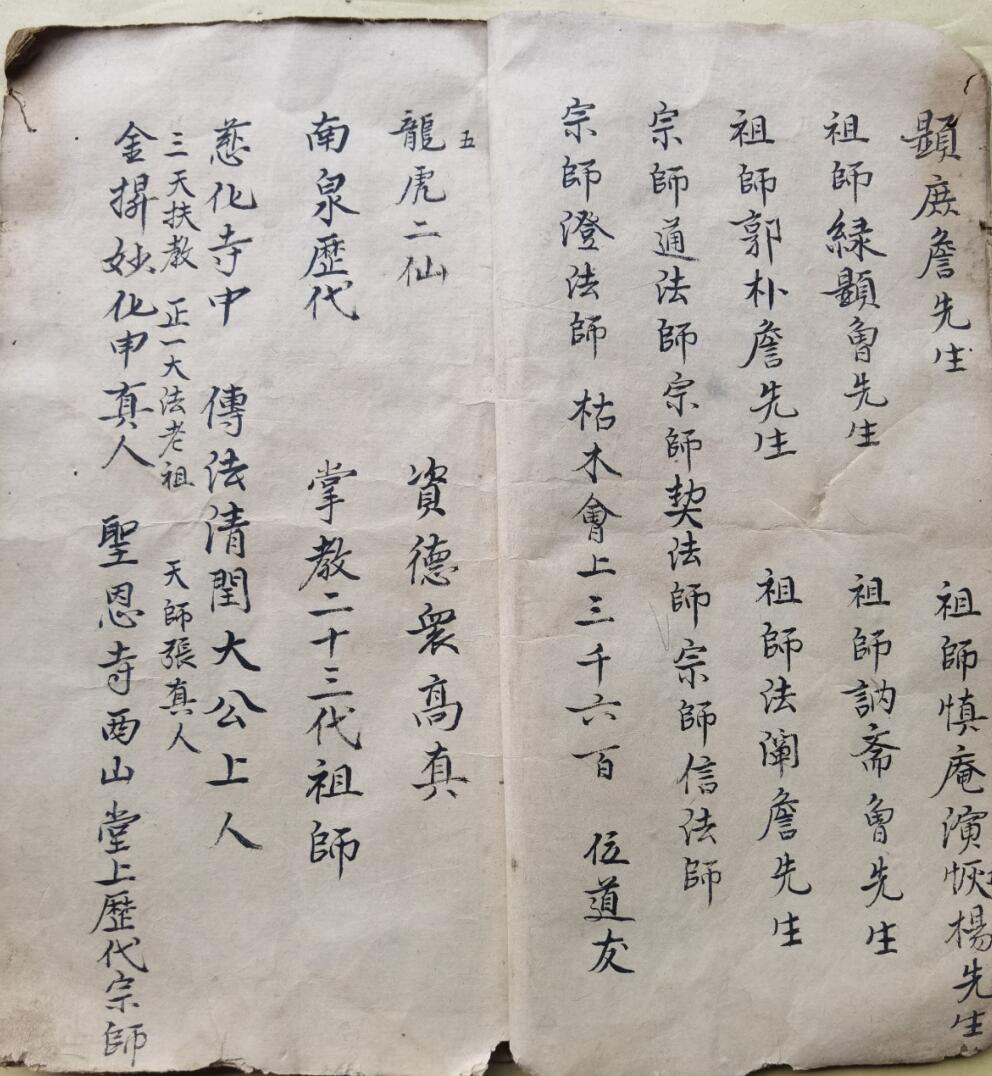 顯庻詹先生 祖師慎庵演恢楊先生
祖師緑顯魯先生 祖師訥斋魯先生
祖師郭朴詹先生 祖師法闡詹先生
宗師通法師宗師契法師宗師信法師
宗師澄法師 枯木會上三千六百 位道友
五
龍虎二仙 資德衆高真
南泉歷代 掌教二十三代祖師
慈化寺中 傳法清閏大公上人
三天扶教 正一大法老祖 天師張真人
金㨒妙化申真人 聖恩寺西山堂上歷代宗師